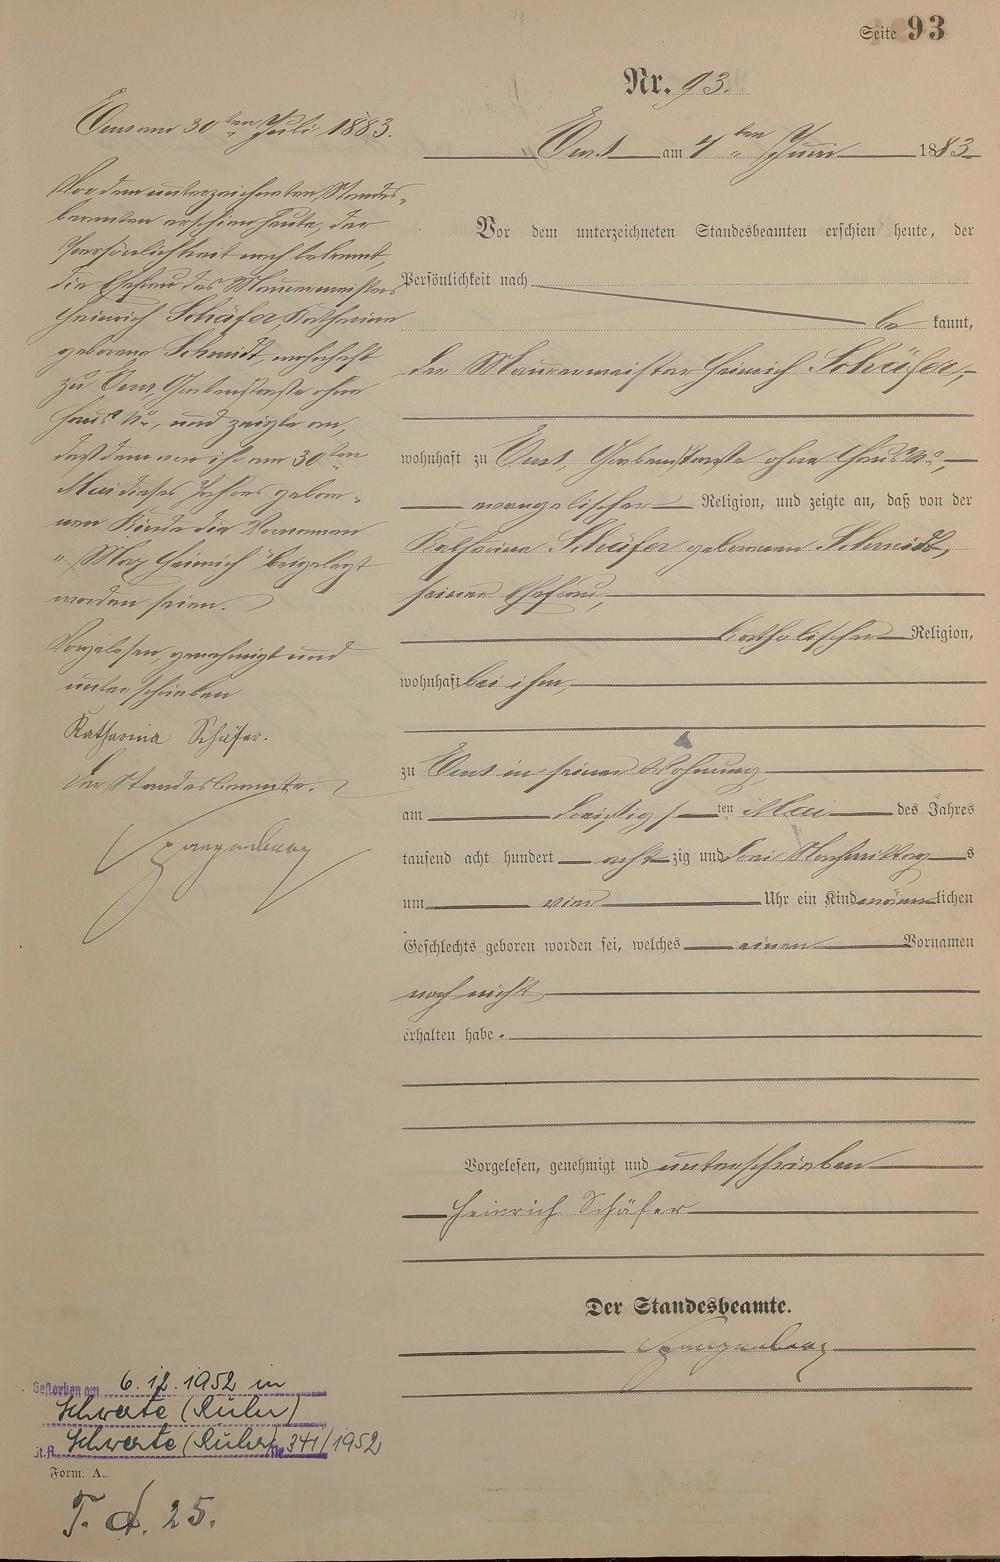 Seite 93
Nr. 93.
Ems am 4ten Juni 1883
Vor dem unterzeichneten Standesbeamten erschien heute, der
Persönlichkeit nach
be kannt,
der Maurermeister Heinrich Schäfer,
wohnhaft zu Ems, Grabenstraße ohne Haus No,
evangelischer Religion, und zeigte an, daß von der
Katharina Schäfer geborenen Schmidt,
seiner Ehefrau,
katholischer Religion,
wohnhaft bei ihm,
zu Ems in seiner Wohnung
am dreißigsten Mai des Jahres
tausend acht hundert acht zig und drei Nachmittags
um vier Uhr ein Kind männlichen
Geschlechts geboren worden sei, welches einen Vornamen
noch nicht
erhalten habe.
Vorgelesen, genehmigt und unterschrieben
Heinrich Schäfer
Der Standesbeamte.
Spangenberg
Ems am 30ten Juli 1883.
Vor dem unterzeichneten Standes-
beamten erschien heute, der
Persönlichkeit nach bekannt,
die Ehefrau des Maurermeisters
Heinrich Schäfer, Katharina
geborene Schmidt, wohnhaft
zu Ems, Grabenstraße ohne
Haus No, und zeigte an,
daß dem am 30ten
Mai dieses Jahres gebore-
nen Kinde die Vornamen
"Max Heinrich" beigelegt
worden seien.
Vorgelesen, genehmigt und
unterschrieben
Katharina Schäfer.
Der Standesbeamte.
Spangenberg
Gestorben am 6.12.1952 in
Schwerte (Ruhr)
St.A. Schwerte (Ruhr) Nr. 341/1952
Form. A.
T. d. 25.